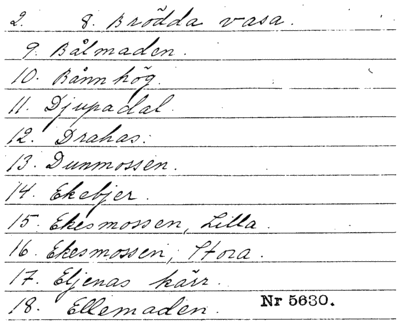 2. 8. Brödda vasa.
9. Bålmaden.
10. Bånn hög.
11. Djupadal.
12. Drahas:
13. Dunmossen.
14. Ekebjer.
15. Ekesmossen, Lilla.
16. Ekesmossen, Stora.
17. Eljenas kärr.
18. Ellemaden. Nr 5630.